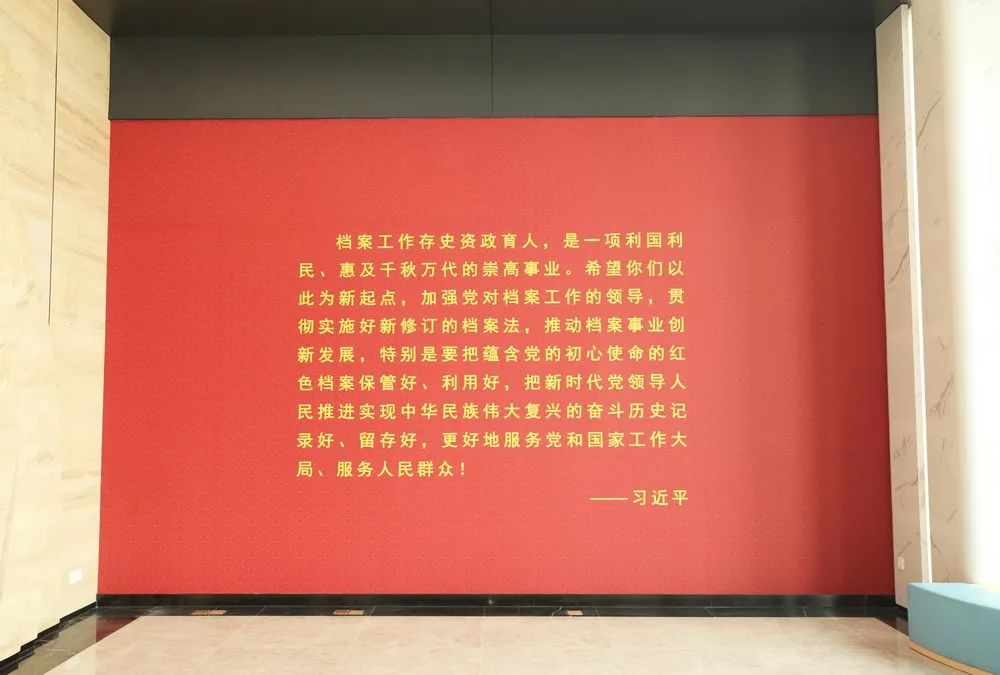 档案工作存史资政育人，是一项利国利
民、惠及千秋万代的崇高事业。希望你们以
此为新起点，加强党对档案工作的领导，贯
彻实施好新修订的档案法，推动档案事业创
新发展，特别是要把蕴含党的初心使命的红
色档案保管好、利用好，把新时代党领导人
民推进实现中华民族伟大复兴的奋斗历史记
录好、留存好，更好地服务党和国家工作大
局、服务人民群众！
——习近平